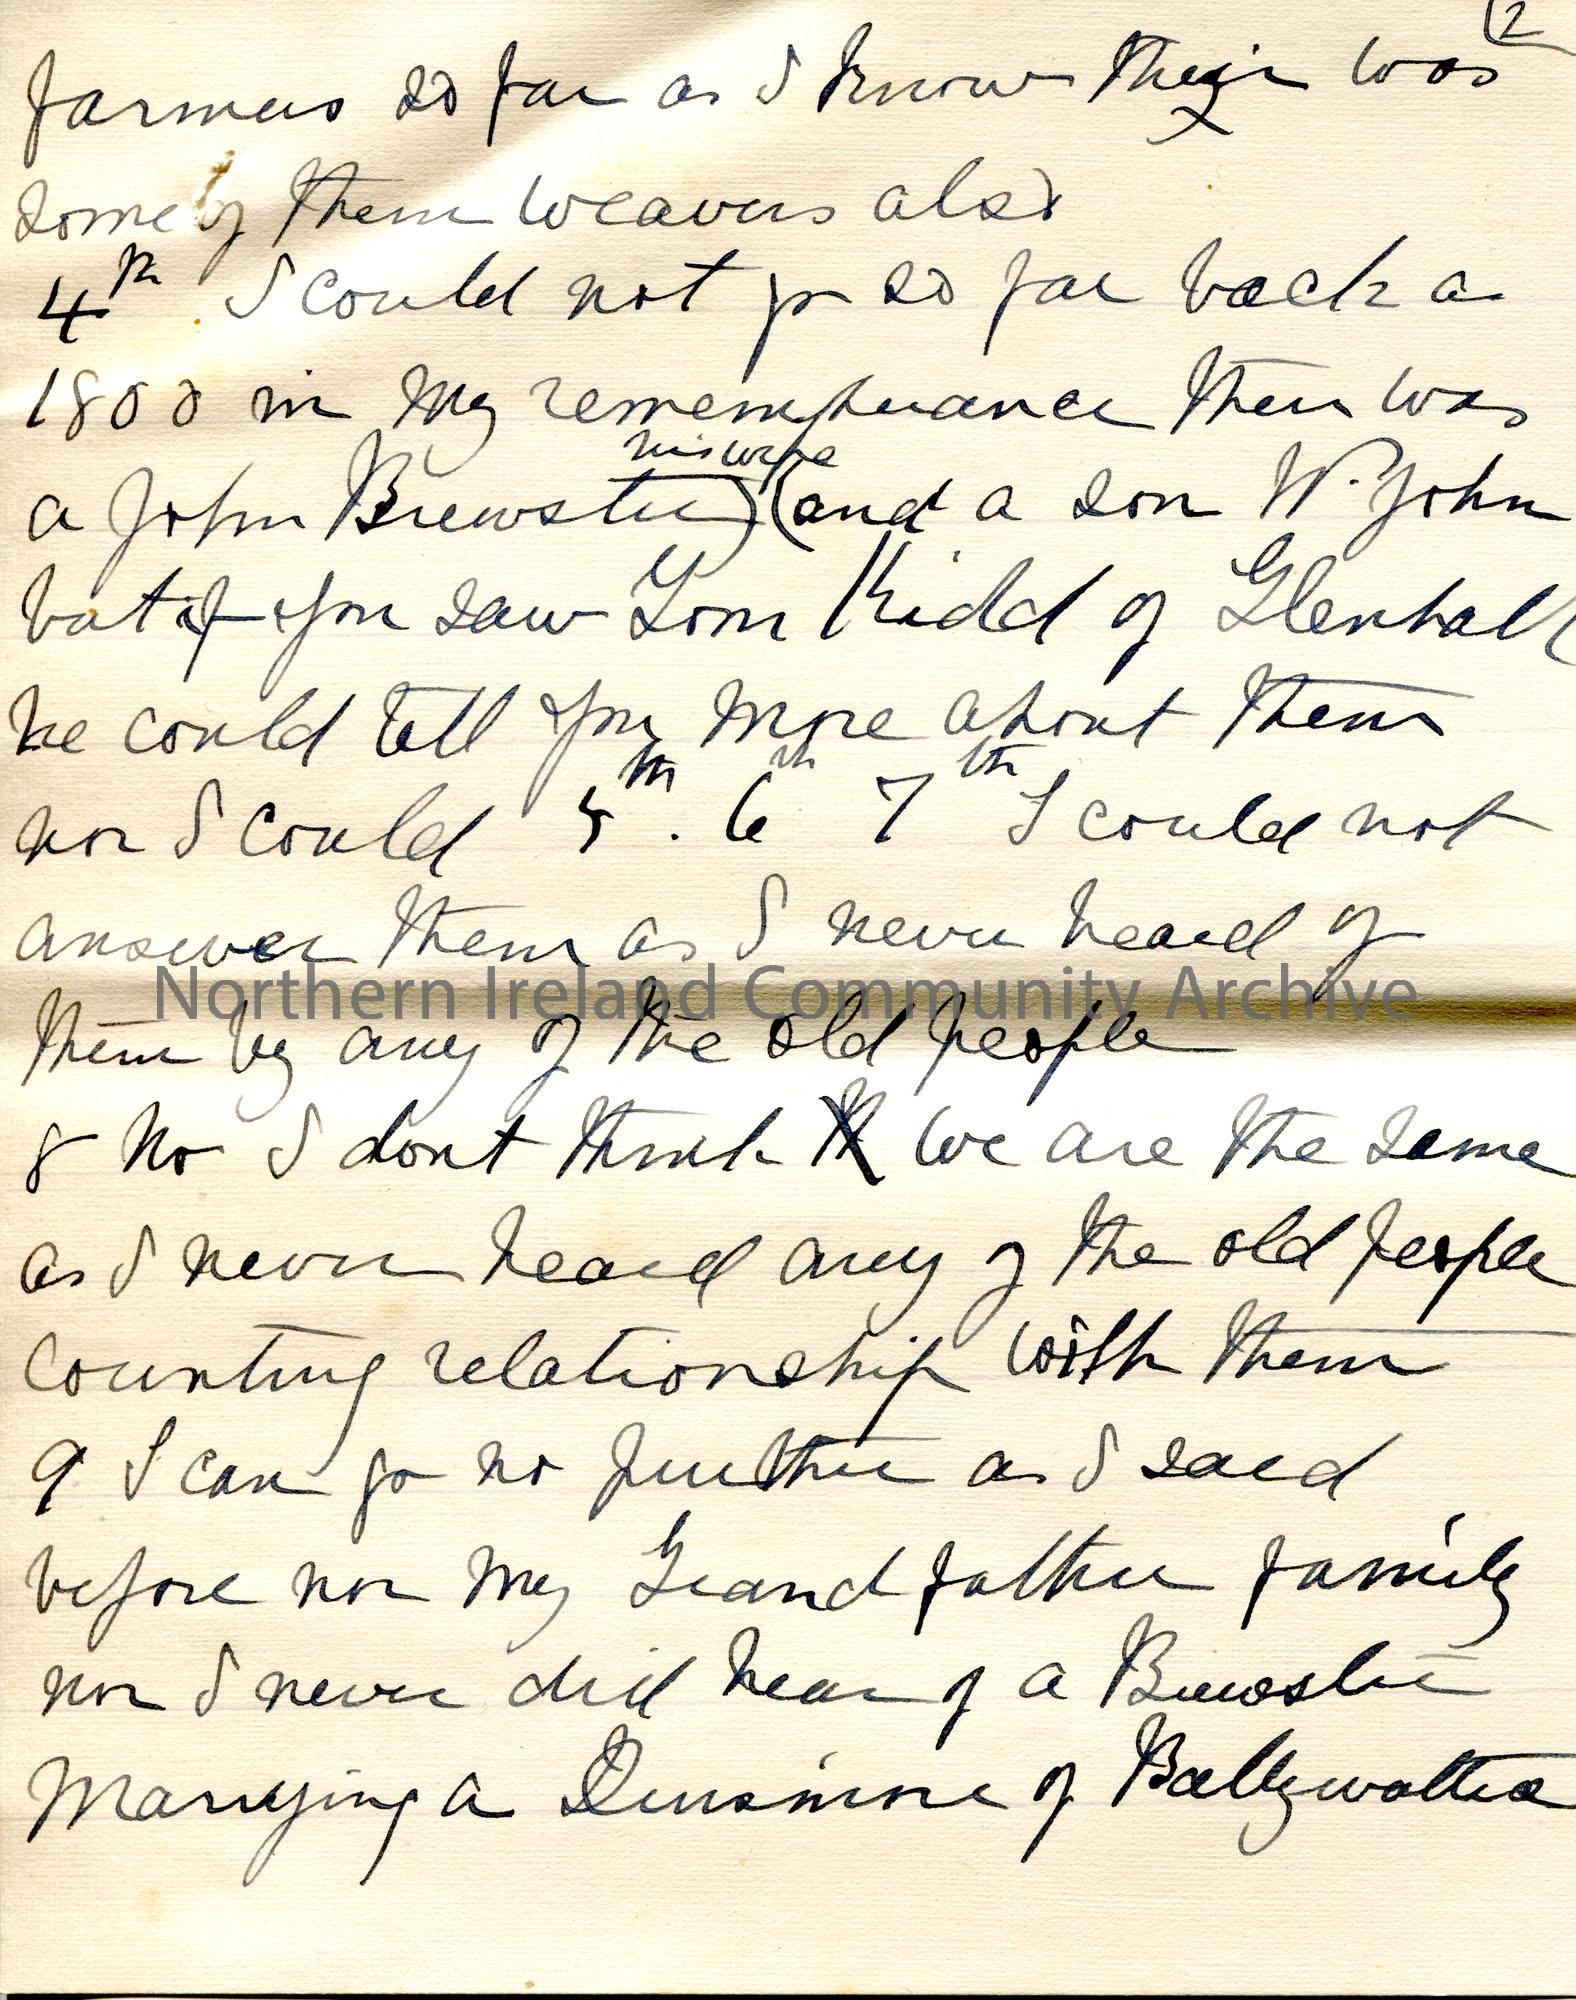 (2
farmers so far as I know their was
some of them weavers also
4th I could not go so far back as
1800 in my rememphrance there was
his wife
a John Brewster) (and a son W. John
but if you saw Tom Kidd of Glenhall
he could tell you more about them
nor I could 5th. 6th 7th I could not
answer them as I never heard of
Northern Ireland Community Archive
them by any of the old people
8 No I dont think we are the same
as I never heard any of the old people
counting relationship with them
9 I can go no further as I said
before nor my Grandfather family
nor I never did hear of a Brewster
Marrying a Dunsmore of Ballywatter